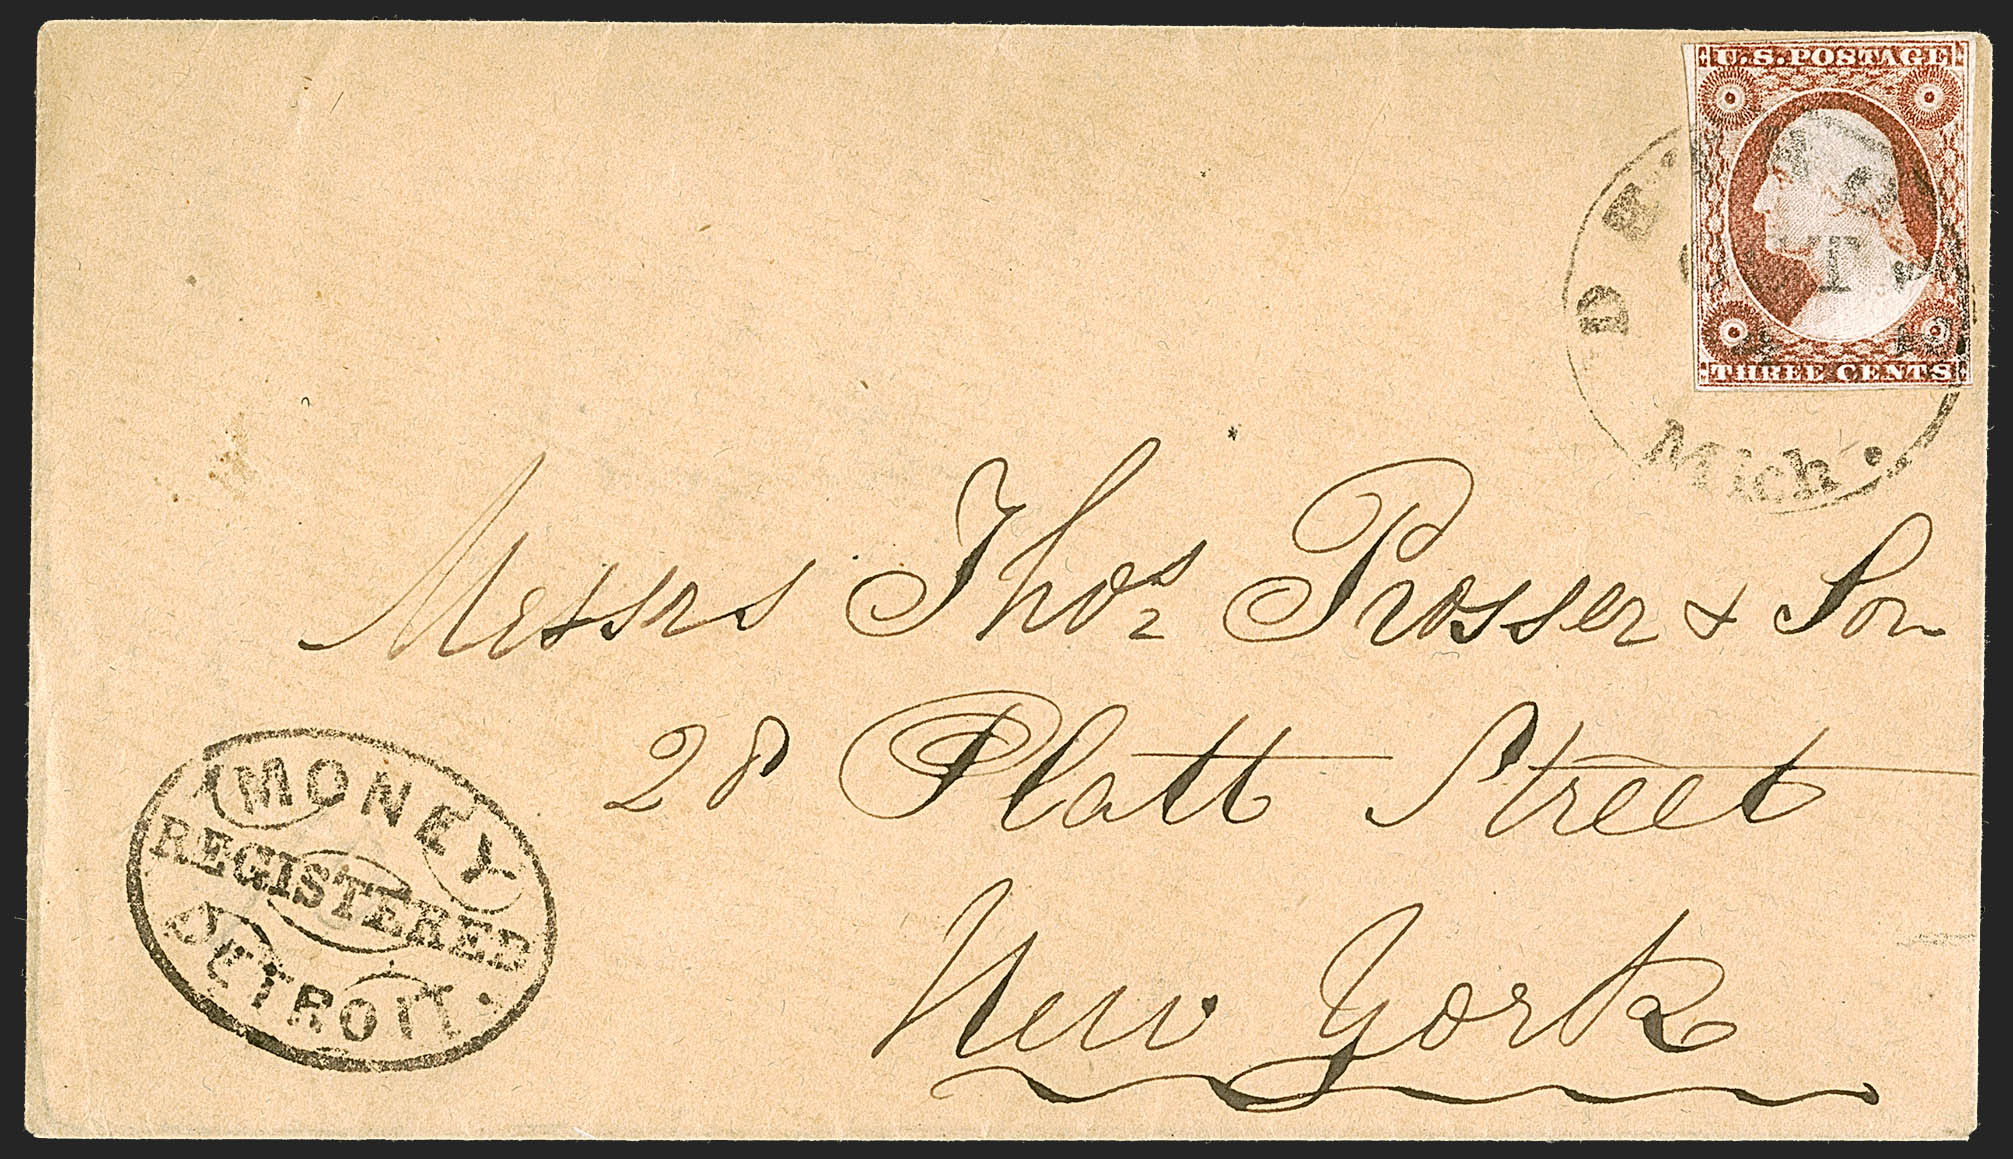 U.S. POSTAGE
THREE CENTS
DETROIT
Mich.
Messrs Thos Prosser & Son
28 Platt Street
New York
MONEY
REGISTERED
DETROIT.